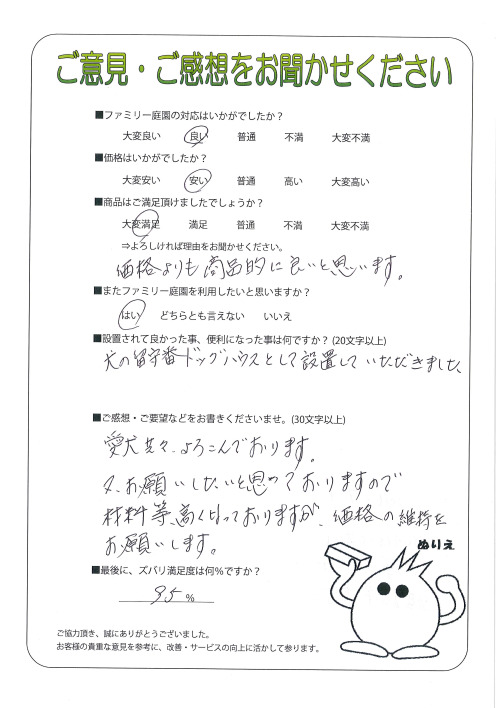 ご意見・ご感想をお聞かせください
■ファミリー庭園の対応はいかがでしたか？
大変良い 良い 普通 不満 大変不満
■価格はいかがでしたか？
大変安い 安い 普通 高い 大変高い
■商品はご満足頂けましたでしょうか？
大変満足 満足 普通 不満 大変不満
⇒よろしければ理由をお聞かせください。
価格よりも商品的に良いと思います。
■またファミリー庭園を利用したいと思いますか？
はい どちらとも言えない いいえ
■設置されて良かった事、便利になった事は何ですか？(20文字以上)
犬の留守番ドッグハウスとして設置していただきました
■ご感想・ご要望などをお書きくださいませ。(30文字以上)
愛犬共々、よろこんでおります。
又、お願いしたいと思っておりますので
材料等高くなっておりますが、価格への維持を
お願いします。
ぬりえ
■最後に、ズバリ満足度は何％ですか？
95 %
ご協力頂き、誠にありがとうございました。
お客様の貴重な意見を参考に、改善・サービスの向上に活かして参ります。